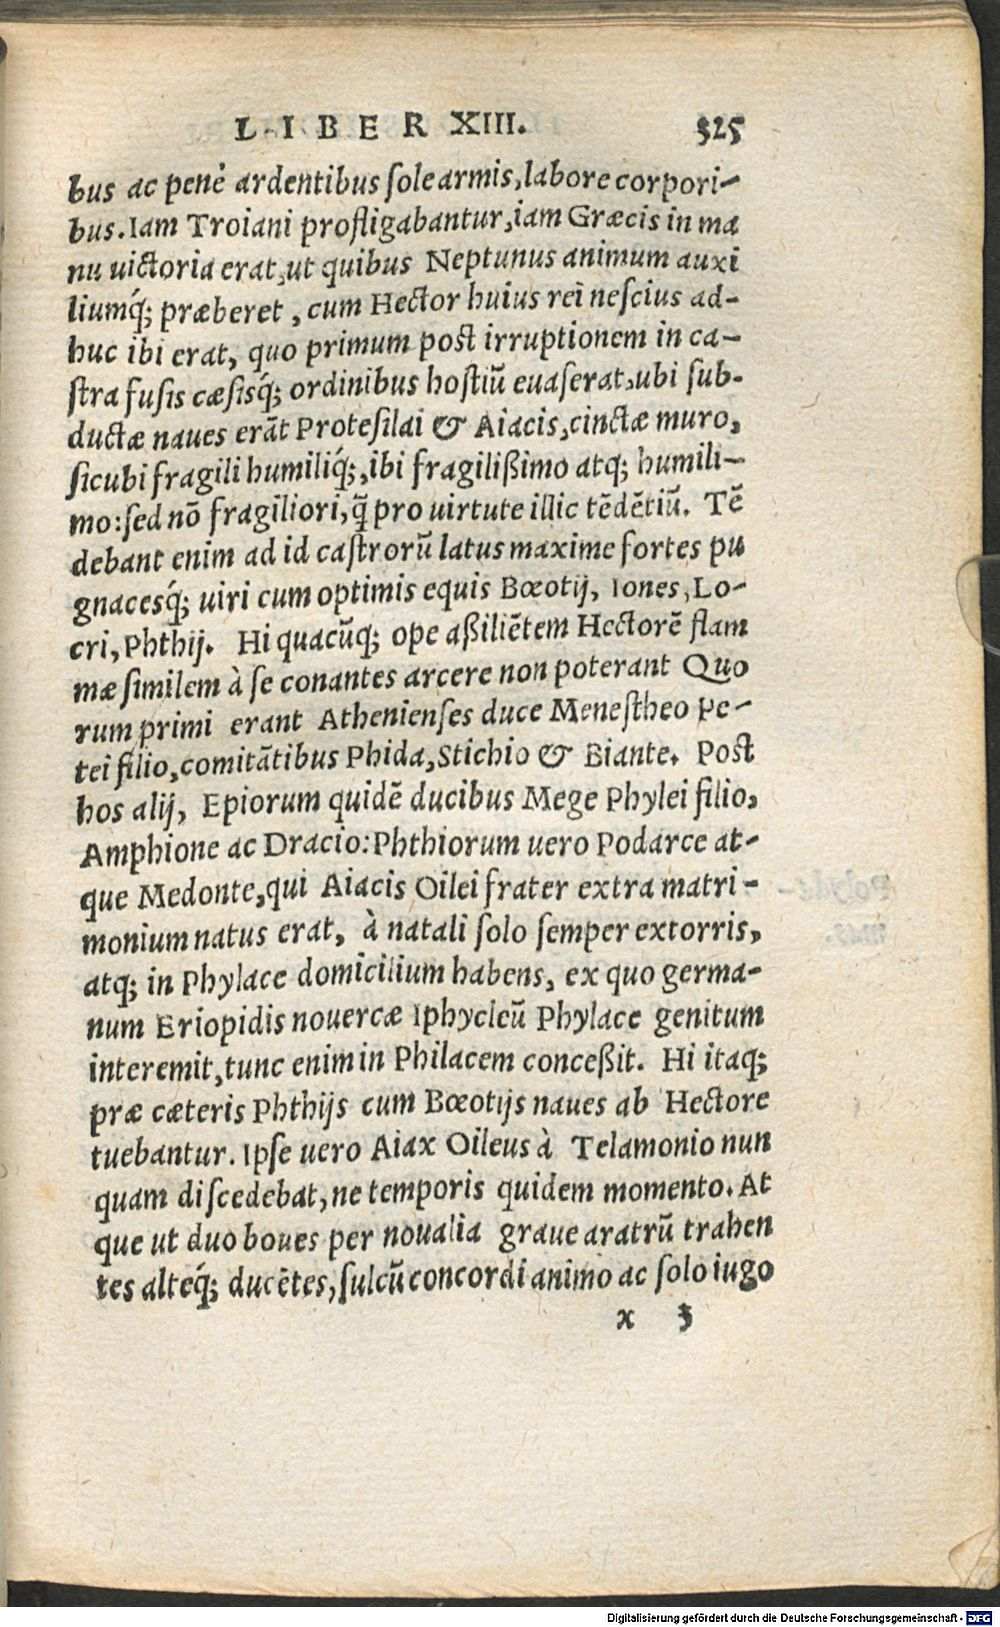 LIBER XIII. 325
bus ac penè ardentibus sole armis, labore corpori-
bus. Iam Troiani profligabantur, iam Græcis in ma
nu uictoria erat, ut quibus Neptunus animum auxi
liumq́; præberet, cum Hector huius rei nescius ad-
huc ibi erat, quo primum post irruptionem in ca-
stra fusis cæsisq́; ordinibus hostiũ euaserat, ubi sub-
ductæ naues erãt Protesilai & Aiacis, cinctæ muro,
sicubi fragili humiliq́;, ibi fragilißimo atq; humili-
mo: sed nõ fragiliori, q̃ pro uirtute illic tẽdẽtiũ. Tẽ
debant enim ad id castrorũ latus maxime fortes pu
gnacesq́; uiri cum optimis equis Bœotij, Iones, Lo-
cri, Phthij. Hi quacũq; ope aßiliẽtem Hectorẽ flam
mæ similem à se conantes arcere non poterant Quo
rum primi erant Athenienses duce Menestheo Pe-
tei filio, comitãtibus Phida, Stichio & Biante. Post
hos alij, Epiorum quidẽ ducibus Mege Phylei filio,
Amphione ac Dracio: Phthiorum uero Podarce at-
que Medonte, qui Aiacis Oilei frater extra matri-
monium natus erat, à natali solo semper extorris,
atq; in Phylace domicilium habens, ex quo germa-
num Eriopidis nouercæ Iphycleũ Phylace genitum
interemit, tunc enim in Philacem conceßit. Hi itaq;
præ cæteris Phthijs cum Bœotijs naues ab Hectore
tuebantur. Ipse uero Aiax Oileus à Telamonio nun
quam discedebat, ne temporis quidem momento. At
que ut duo boues per noualia graue aratrũ trahen
tes alteq́; ducẽtes, sulcũ concordi animo ac solo iugo
x 3
Digitalisierung gefördert durch die Deutsche Forschungsgemeinschaft - DFG